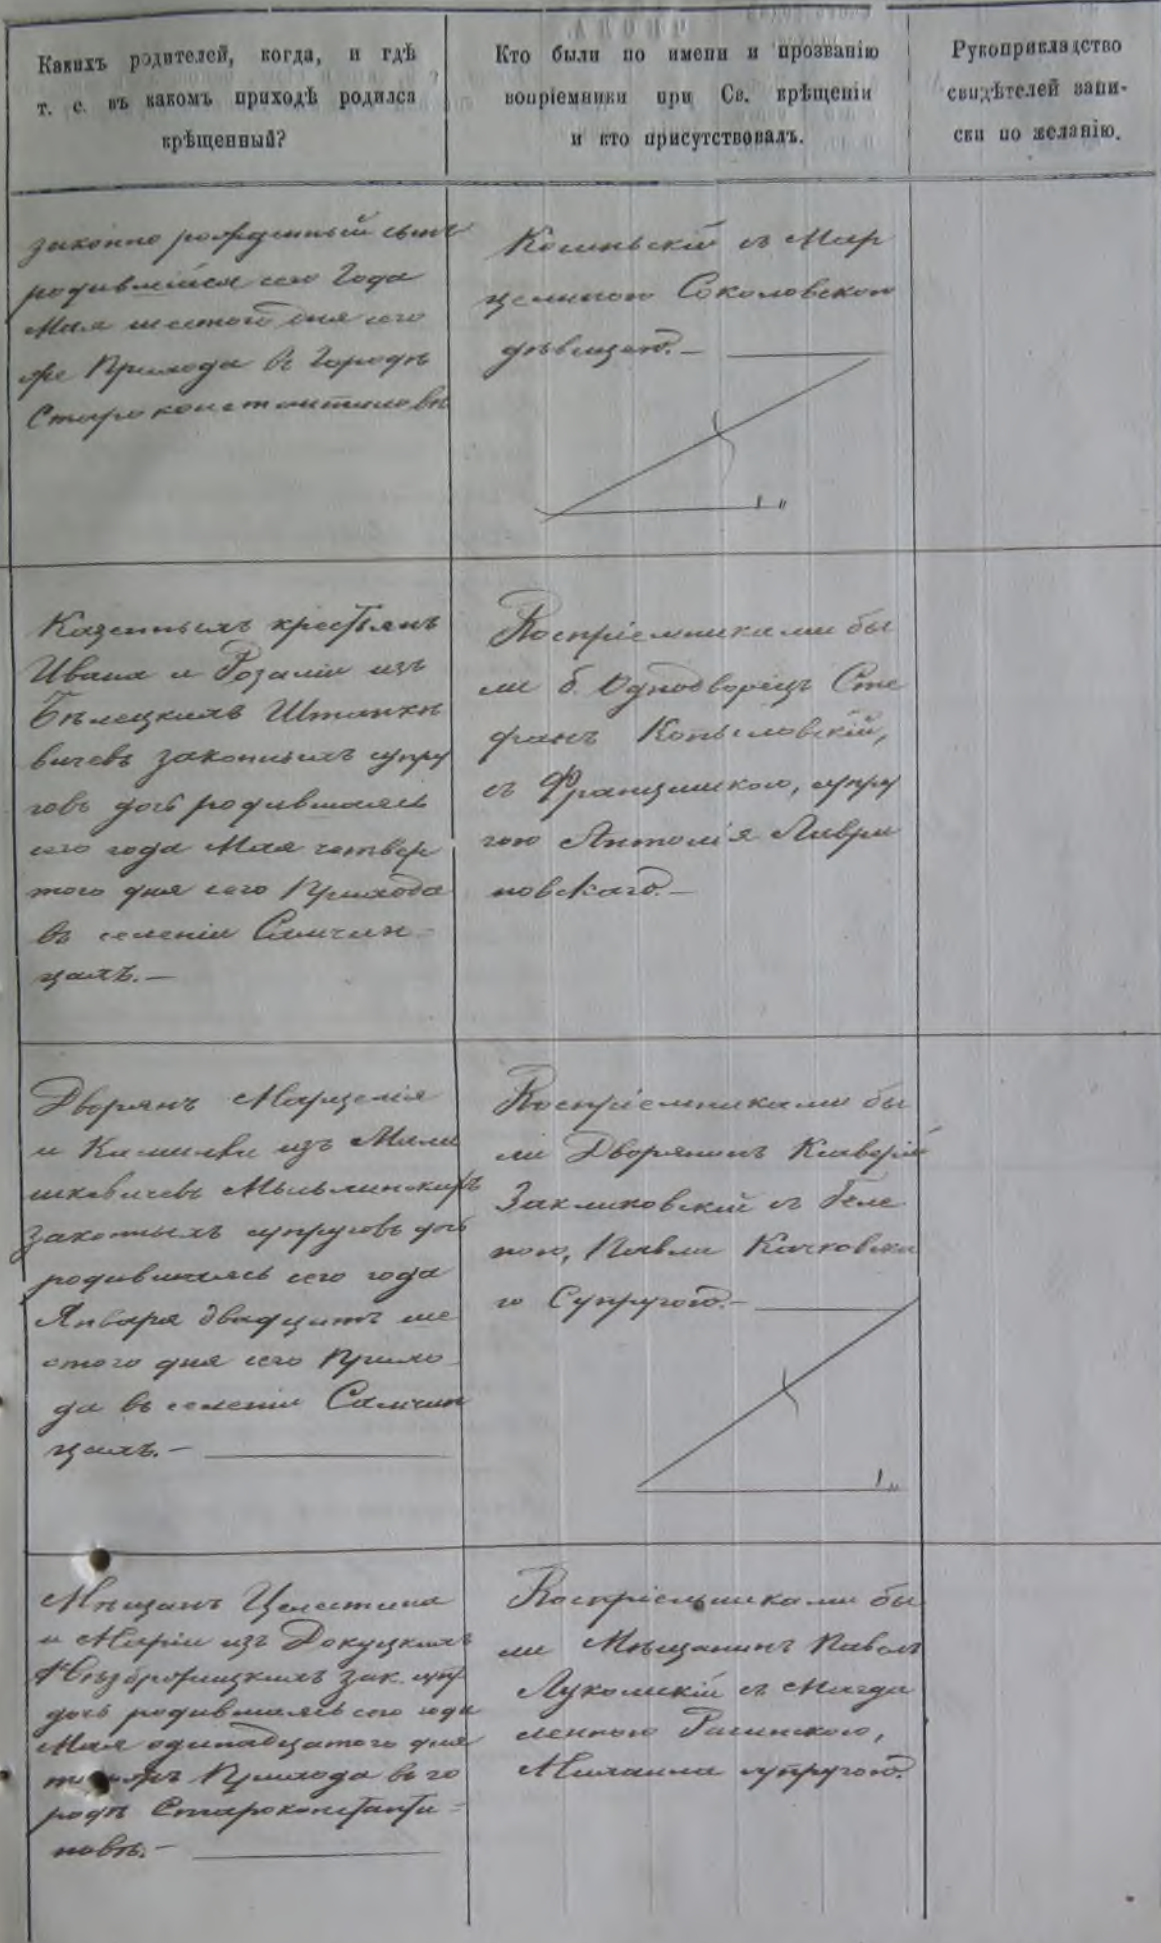 Какихъ родителей, когда, и гдѣ
т. е. въ какомъ приходѣ родился
крѣщенный?
Кто были по имени и прозванію
вопріемники при Св. крѣщеніи
и кто присутствовалъ.
Рукоприкладство
свидѣтелей запи-
ски по желанію.
законно рожденный сынъ
родившійся сего Года
Мая шестого дня сего
же Прихода въ Городѣ
Староконстантиновѣ
съ Мар
целиною Соколовскою
дѣвицею.—
Казенныхъ крестьянъ
Ивана и Розаліи изъ
Бѣлецкихъ
вичевъ законныхъ супру
говъ дочь родившаяся
сего года Мая четвер
того дня сего Прихода
въ селеніи Самчин-
цахъ.—
Воспріемниками бы
ли б. Однодворецъ Сте
фанъ Копыловскій,
съ Францишкою, супру
гою Антонія Лаври
новскаго.—
Дворянъ Марцелія
и Камиллы изъ Мили
шкевичевъ
законныхъ супруговъ дочь
родившаяся сего года
Января двадцать ше
стого дня сего Прихо
да въ селеніи Самчин
цахъ.—
Воспріемниками бы
ли Дворянинъ Ксаверій
Закликовскій съ Геле
ною, Павла Качковска
го Супругою.—
Мѣщанъ Целестина
и Маріи изъ Докуцкихъ
зак. суп.
дочь родившаяся сего года
Мая одинадцатого дня
Прихода въ го
родѣ Староконстанти-
новѣ.—
Воспріемниками бы
ли Мѣщанинъ Павелъ
Лукомскій съ Магда
леною Рачинскою,
Михаила супругою.